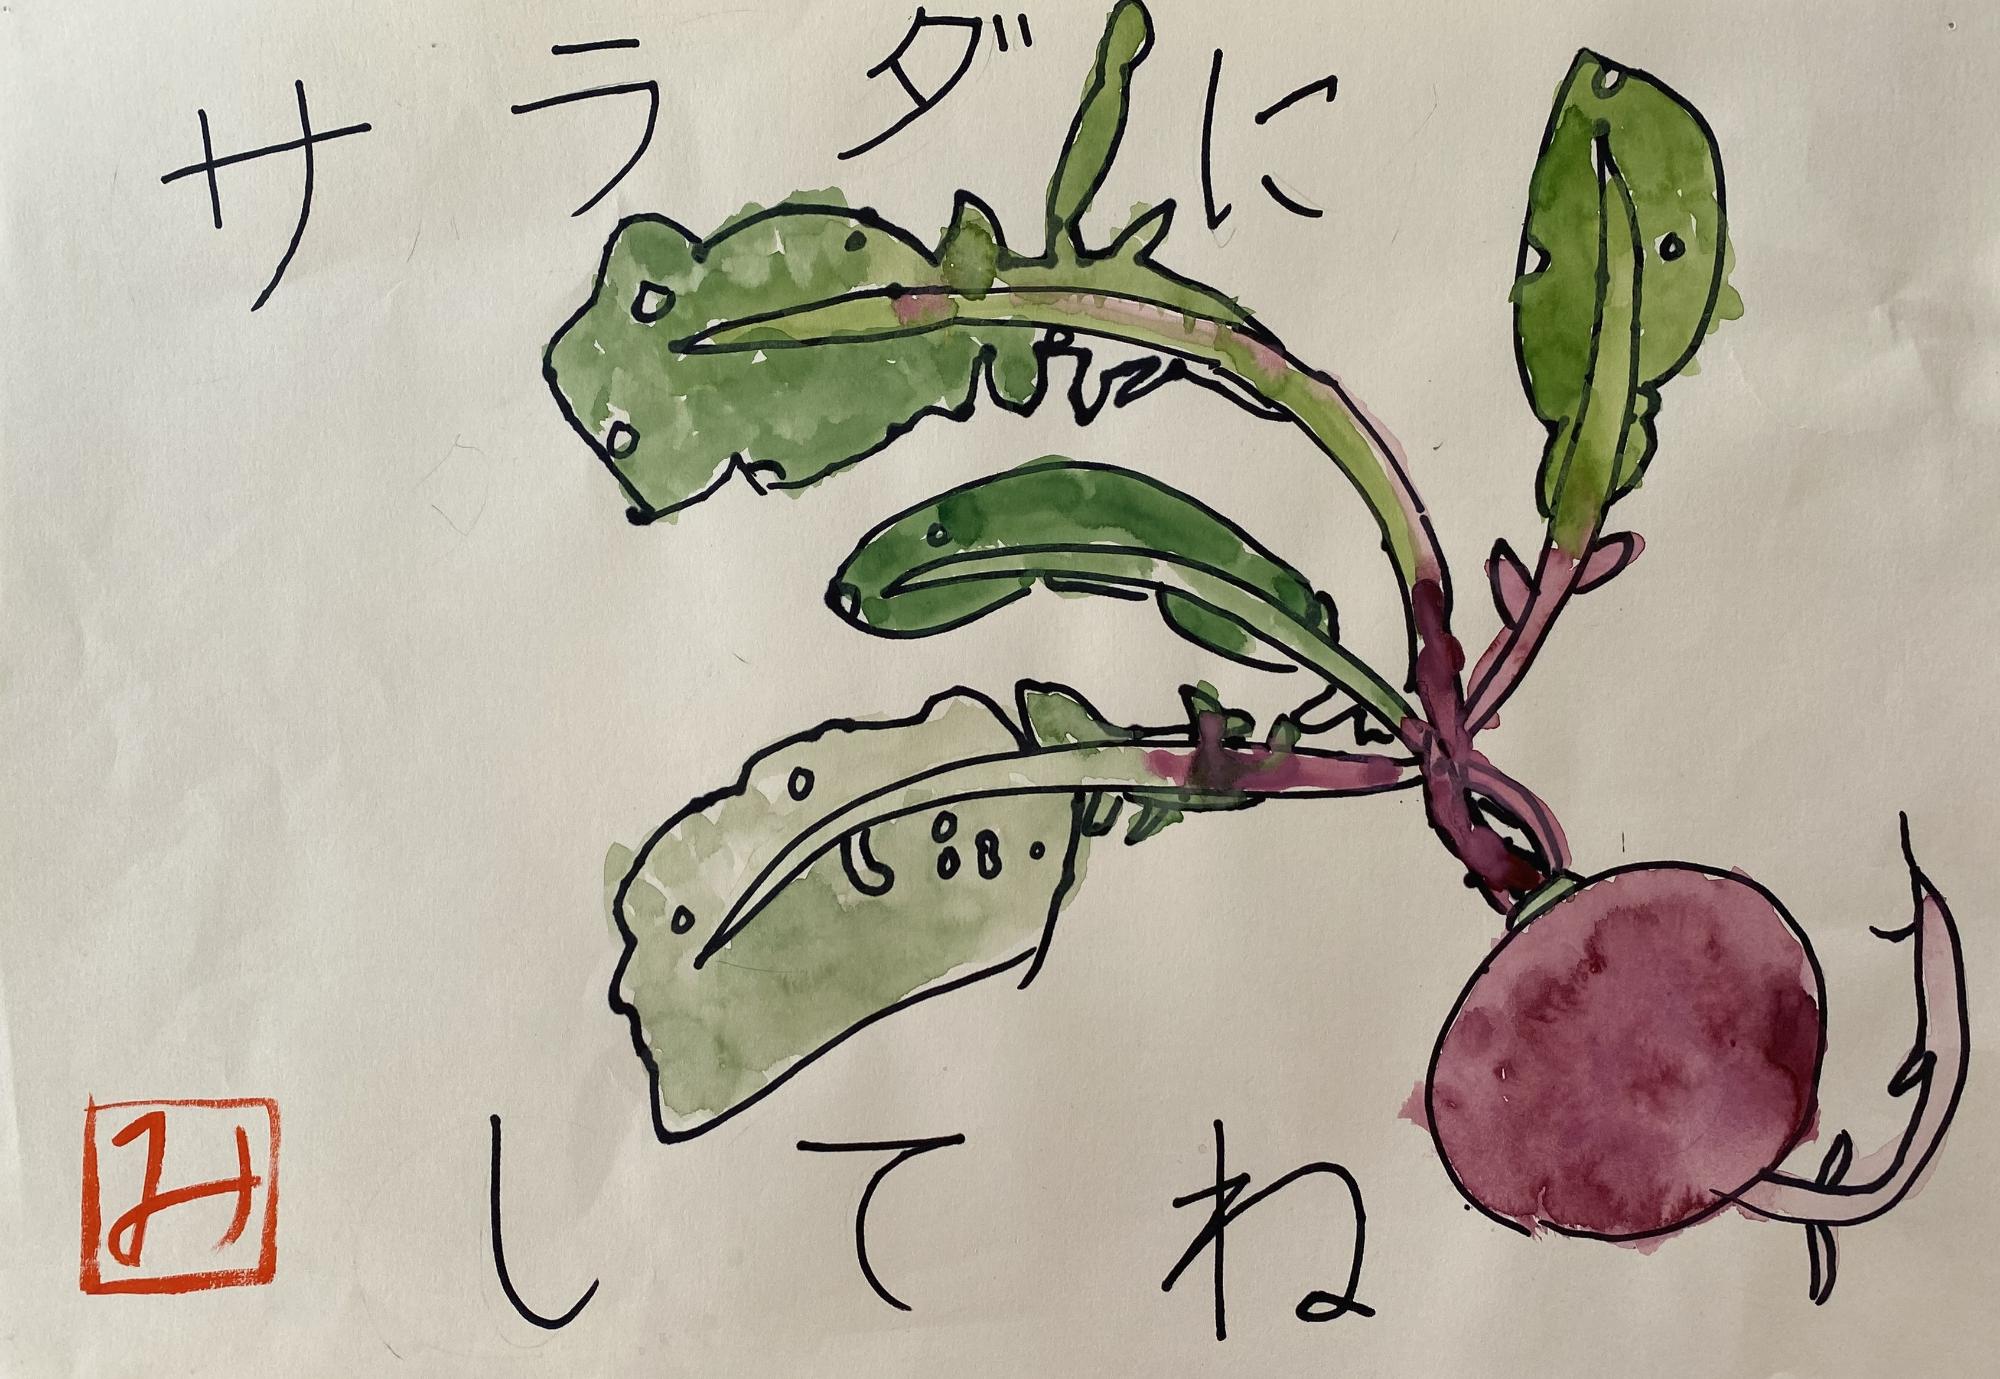 サラダに
してね
み